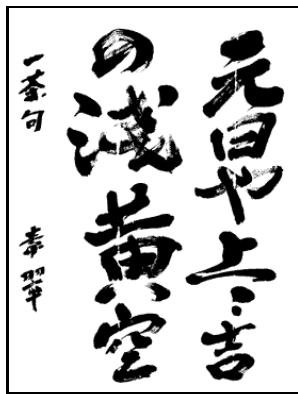 元日や上々吉
の淺黄空
一茶句
翠